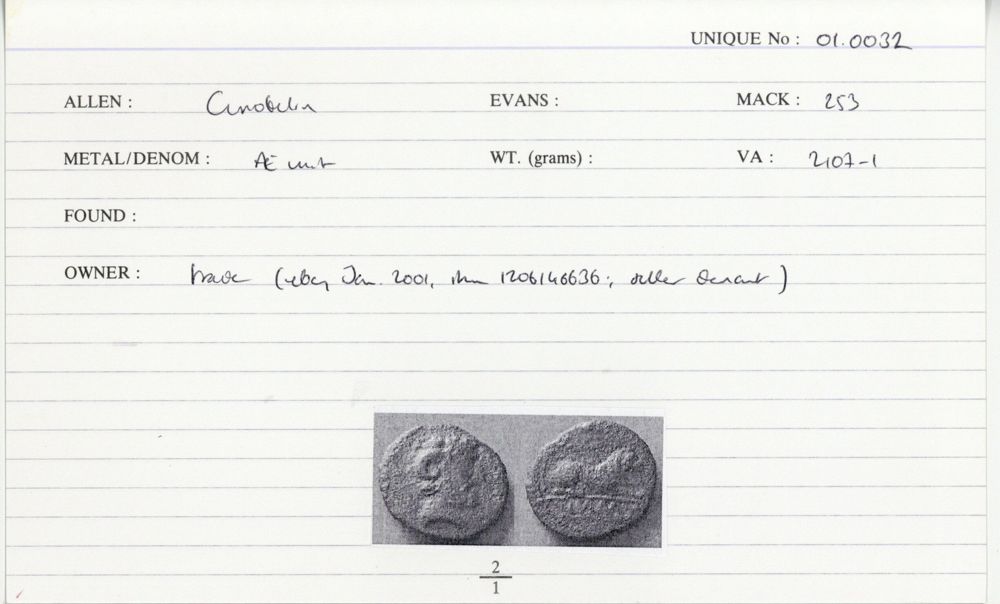 UNIQUE No : 01.0032
ALLEN : Cunobelin EVANS : MACK : 253
METAL/DENOM : Æ unit WT. (grams) : VA : 2107-1
FOUND :
OWNER : trade (eBay Jan. 2001, item 1206146636; seller )
2
1